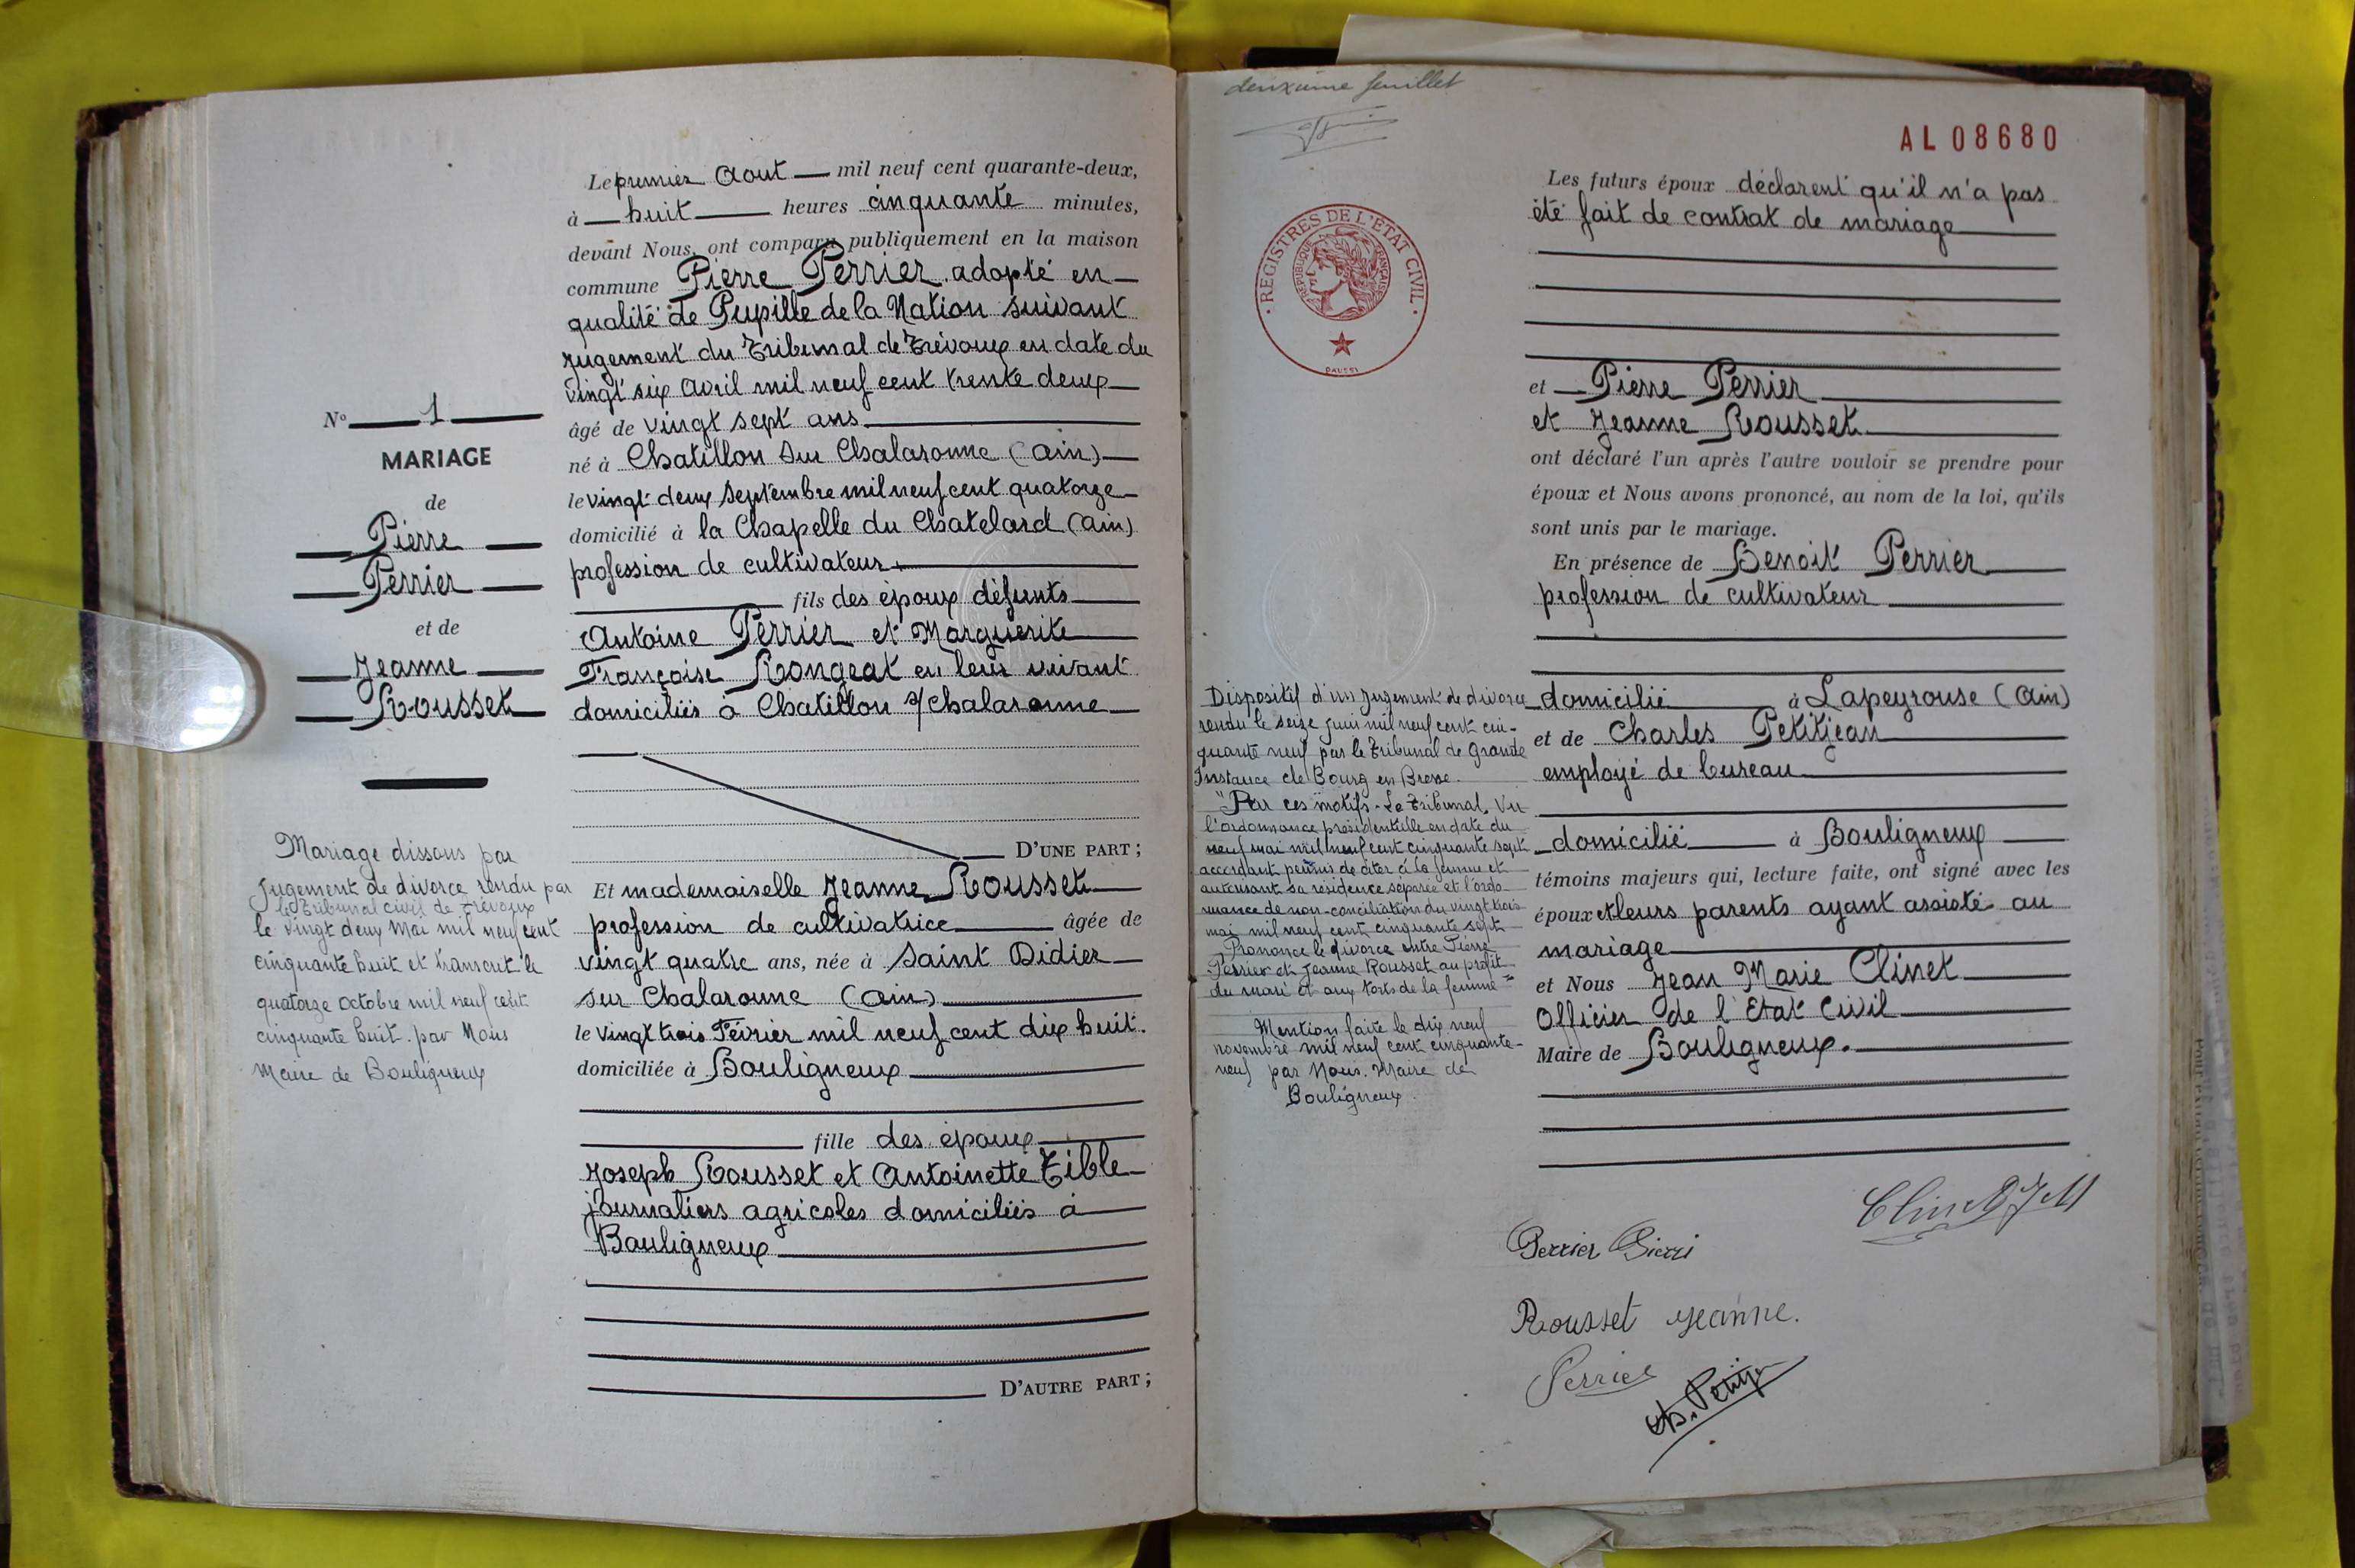 Le premier Aout mil neuf cent quarante-deux,
à huit heures cinquante minutes,
devant Nous, ont comparu publiquement en la maison
commune Pierre Perrier adopté en
qualité de Pupille de la Nation suivant
jugement du Tribunal de Trévoux en date du
vingt six Avril mil neuf cent trente deux
âgé de vingt sept ans
né à Chatillon sur Chalaronne (Ain)
le vingt deux septembre mil neuf cent quatorze
domicilié à la Chapelle du Chatelard (Ain)
profession de cultivateur
fils des époux défunts
Antoine Perrier et Marguerite
Françoise Rongeat en leur vivant
domiciliés à Chatillon s/Chalaronne
D'UNE PART ;
Et mademoiselle Jeanne Rousset
profession de cultivatrice âgée de
vingt quatre ans, née à Saint Didier
sur Chalaronne (Ain)
le vingt trois Février mil neuf cent dix huit.
domiciliée à Bouligneux
fille des époux
Joseph Rousset et Antoinette Tible
journaliers agricoles domiciliés à
Bouligneux
D'AUTRE PART ;
N° 1
MARIAGE
de
Pierre
Perrier
et de
Jeanne
Rousset
Mariage dissous par
jugement de divorce rendu par
le Tribunal civil de Trévoux
le vingt deux Mai mil neuf cent
cinquante huit et transcrit le
quatorze Octobre mil neuf cent
cinquante huit. par Nous
Maire de Bouligneux
deuxième feuillet
AL 08680
REGISTRES DE L'ÉTAT CIVIL
RÉPUBLIQUE FRANÇAISE
Les futurs époux déclarent qu'il n'a pas
été fait de contrat de mariage
et Pierre Perrier
et Jeanne Rousset
ont déclaré l'un après l'autre vouloir se prendre pour
époux et Nous avons prononcé, au nom de la loi, qu'ils
sont unis par le mariage.
En présence de Benoit Perrier
profession de cultivateur
domicilié à Lapeyrouse (Ain)
et de Charles Petitjean
employé de bureau
domicilié à Bouligneux
témoins majeurs qui, lecture faite, ont signé avec les
époux et leurs parents ayant assisté au
mariage
et Nous Jean Marie Clinet
Officier de l'Etat Civil
Maire de Bouligneux.
Dispositif d'un jugement de divorce
rendu le seize juin mil neuf cent cin-
quante neuf par le Tribunal de Grande
Instance de Bourg en Bresse.
"Par ces motifs - Le Tribunal, Vu
l'ordonnance présidentielle en date du
neuf mai mil neuf cent cinquante sept
accordant permis de citer à la femme et
autorisant sa résidence séparée et l'ordo-
nnance de non-conciliation du vingt trois
mai mil neuf cent cinquante sept
Prononce le divorce entre Pierre
Perrier et Jeanne Rousset au profit
du mari et aux torts de la femme"
Mention faite le dix neuf
novembre mil neuf cent cinquante-
neuf par Nous. Maire de
Bouligneux.
Clinet JM
Perrier Pierre
Rousset Jeanne.
Perrier
Ch. Petitj